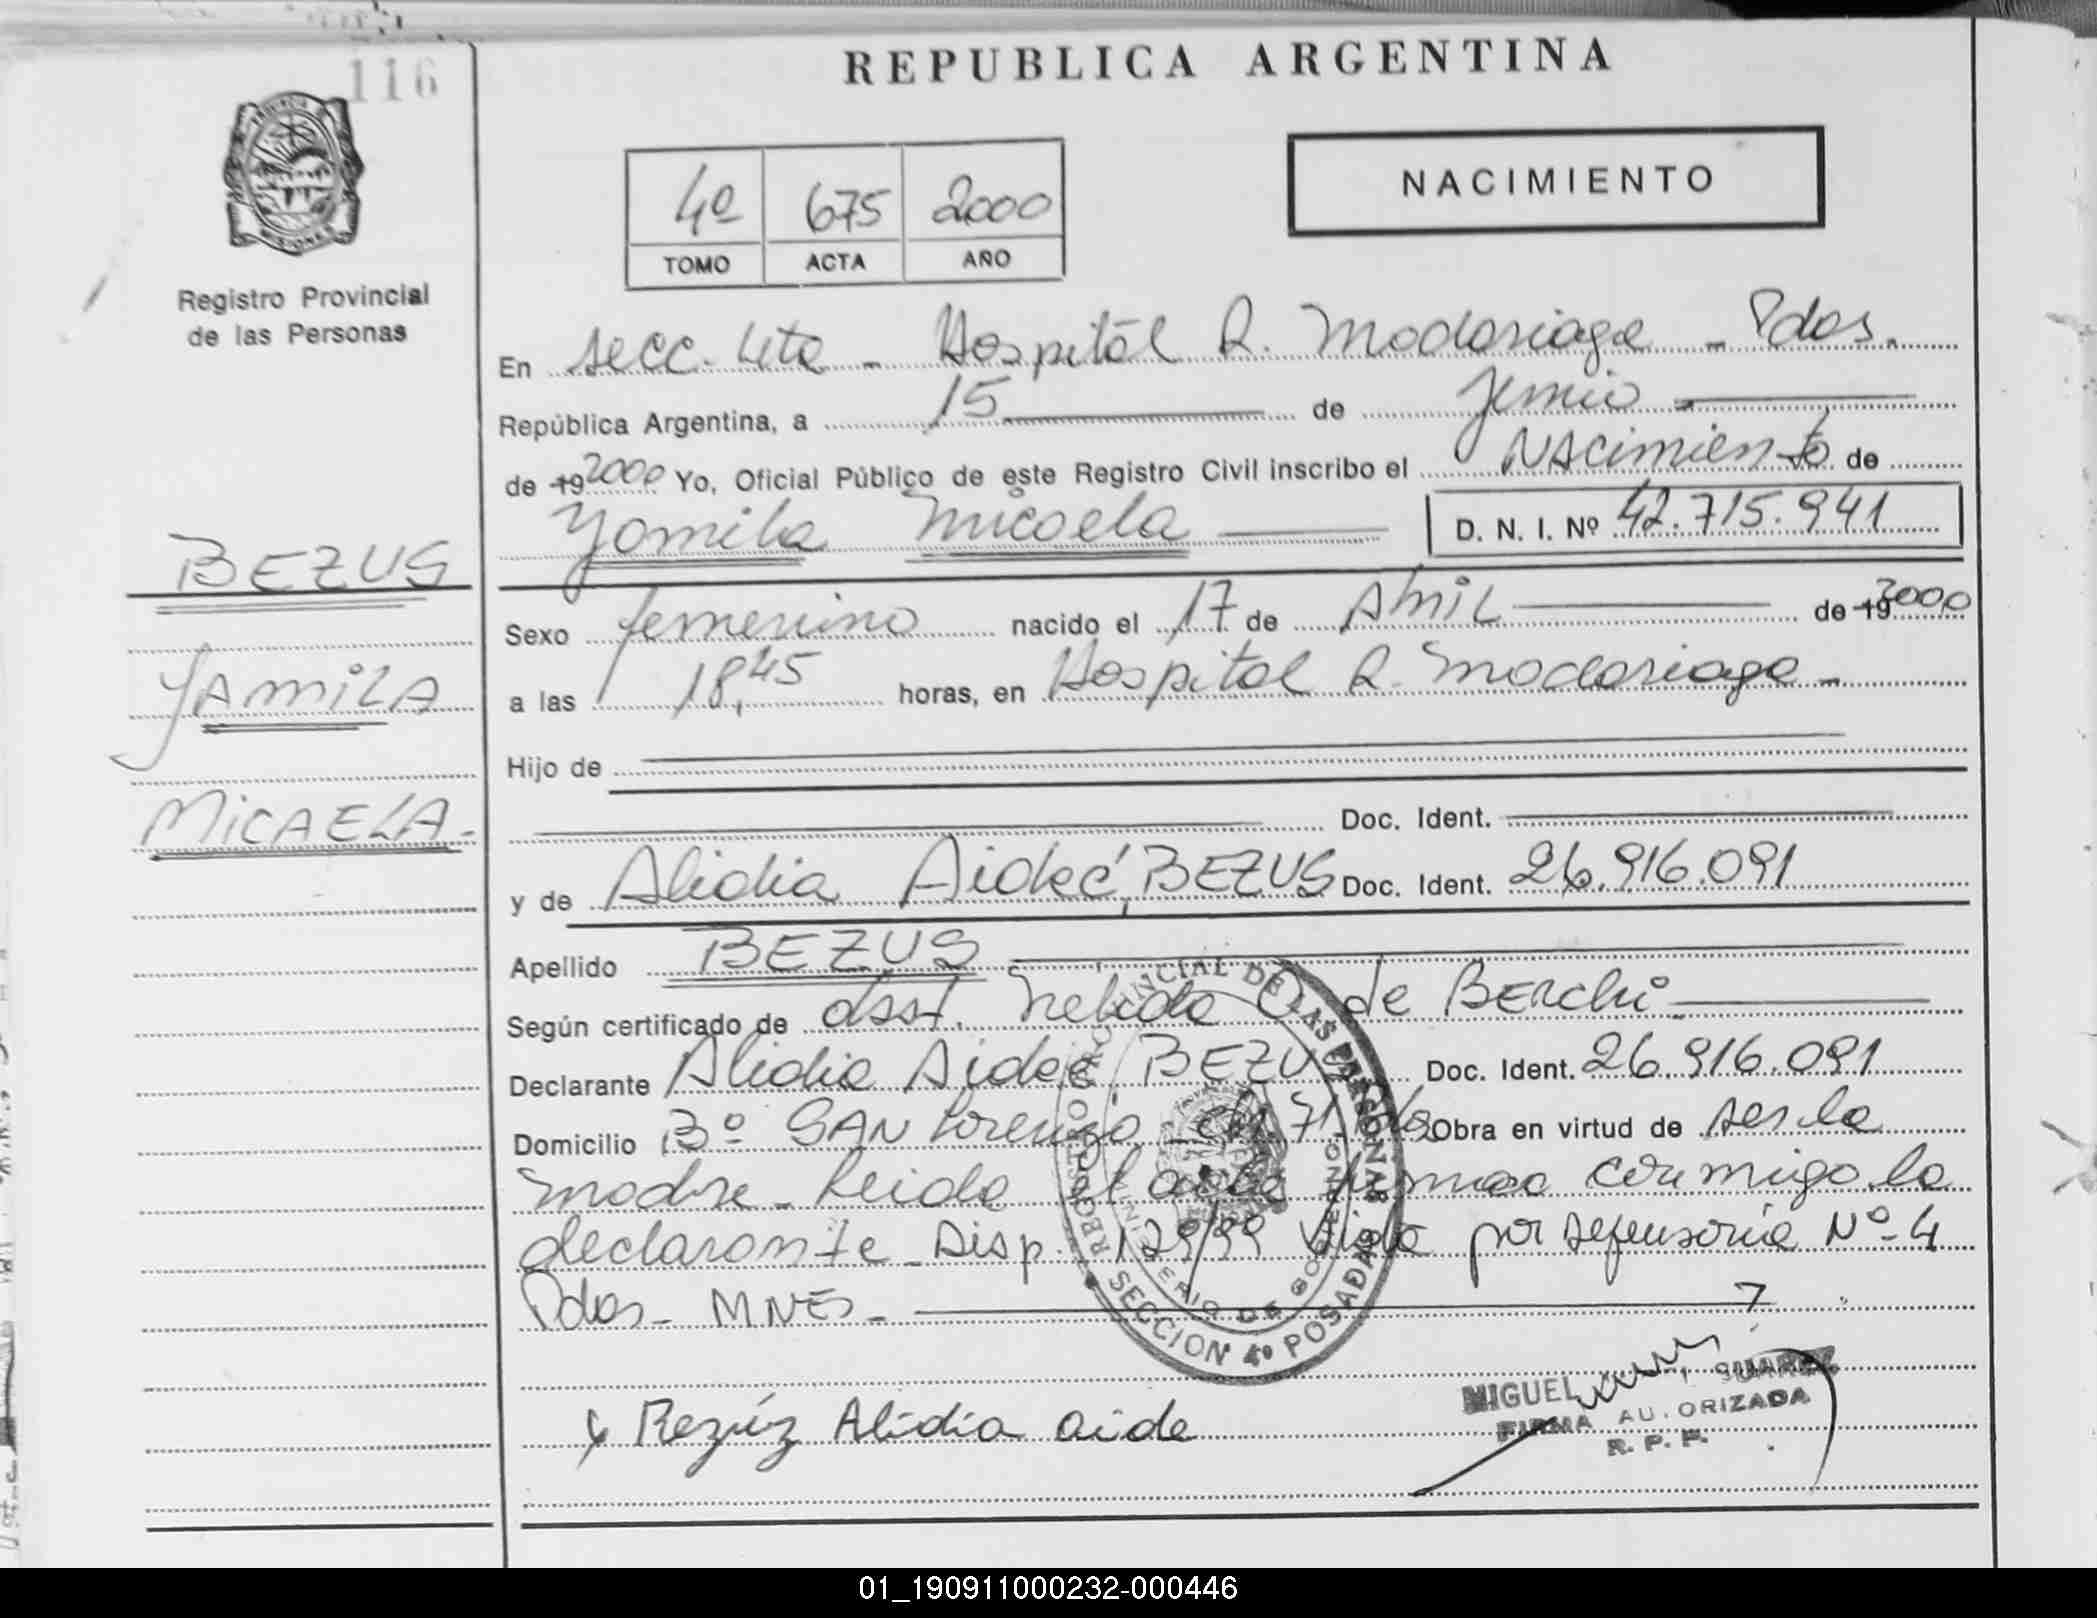 116
REPUBLICA ARGENTINA
PROVINCIA DE
MISIONES
Registro Provincial
de las Personas
4º 675 2000
TOMO ACTA AÑO
NACIMIENTO
En secc. 4ta - Hospital R. Madariaga - Pdas.
República Argentina, a 15 de Junio
de 19 2000 Yo, Oficial Público de este Registro Civil inscribo el NAcimiento de
Yamila Micaela D. N. I. Nº 42.715.941
BEZUS
YAMILA
MICAELA.-
Sexo femenino nacido el 17 de Abril de 19 2000
a las 18,45 horas, en Hospital R. Madariaga -
Hijo de
Doc. Ident.
y de Alidia Aideé, BEZUS Doc. Ident. 26.916.091
Apellido BEZUS
Según certificado de obst. de Berchi
Declarante Alidia Aideé BEZUS Doc. Ident. 26.916.091
Domicilio Bº SAN Lorenzo 71 Obra en virtud de ser la
madre - Leida el acta conmigo la
declarante - Disp. 129/99 por Defensoria Nº 4
Pdas - MNES -
REGISTRO PROVINCIAL DE LAS PERSONAS
MINISTERIO DE GOBIERNO
SECCION 4º POSADAS
Alidia aide
MIGUEL SUAREZ
FIRMA AUTORIZADA
R. P. P.
01_190911000232-000446